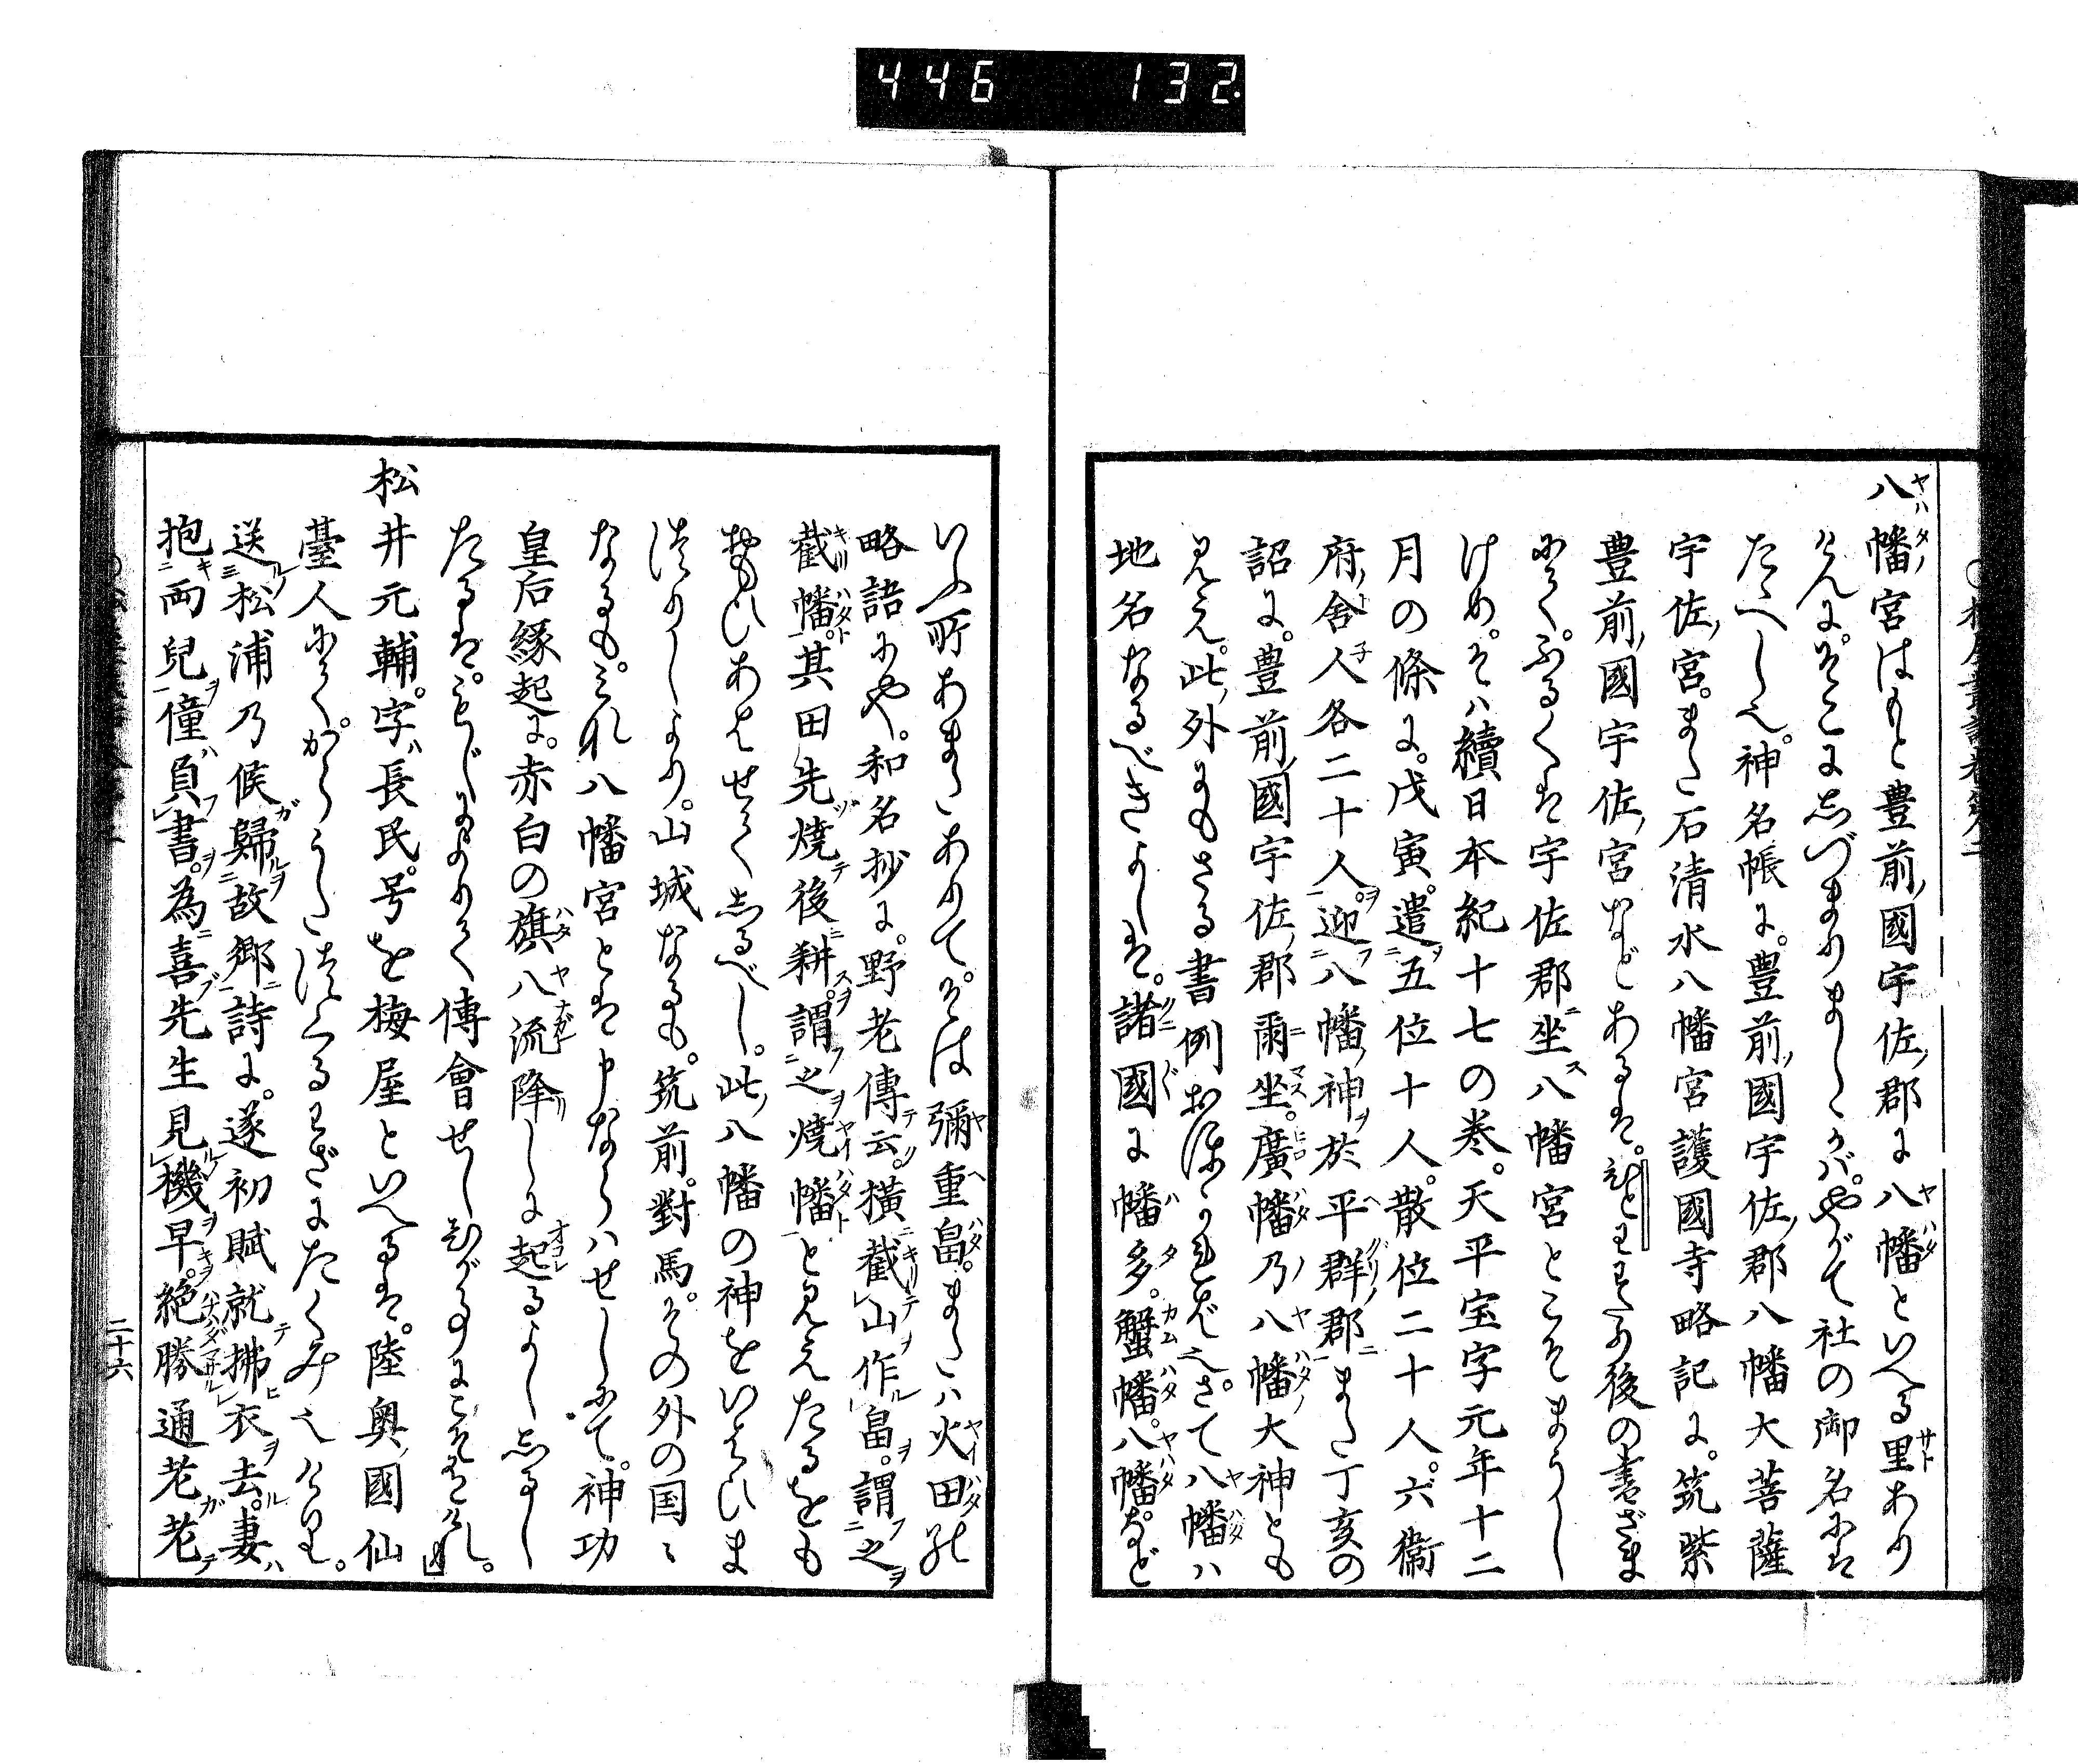 446 132
八幡宮はもと豊前ノ國宇佐ノ郡に八幡といへる里あり
けんに。そこにしづまりましゝかバ。やがて社の御名にハ
たゝへし也。神名帳に。豊前ノ國宇佐ノ郡八幡大菩薩
宇佐ノ宮。また石清水八幡宮護國寺略記に。筑紫
豊前ノ國宇佐ノ宮などあるは。後の書ざま
にて。ふるくは宇佐郡ニ坐ス八幡宮とこそまうし
けめ。そハ續日本紀十七の巻。天平宝字元年十二
月の條に。戊寅。遣五位十人。散位二十人。六衛
府ノ舎人各二十人。迎八幡ノ神於平群ノ郡また丁亥の
詔に。豊前ノ國宇佐ノ郡爾坐。廣幡乃八幡大神とも
見え。此ノ外にもさる書例おほかれば也。さて八幡ハ
地名なるべきよしは。諸國に幡多。蟹幡。八幡など
いふ所あまたありて。そは彌重畠。またハ火田の
略語にや。和名抄に。野老傳云。横截山作畠。謂之
截幡。其田先燒後耕。謂之燒幡と見えたるをも
おもひあはせてしるべし。此ノ八幡の神をいはひま
つりしより。山城なるも。筑前。對馬。その外の国ゝ
なるも。みれ八幡宮とは申ならハせしにて。神功
皇后緣起に。赤白の旗八流降しに起るよししるし
たるは。もじによりて傳會せしひがことにこそあれ。
松井元輔。字ハ長民。号を梅屋といへるは。陸奥ノ國仙
臺人にて。からうたつくるわざにたくみ也けり。
送松浦乃侯歸故鄕詩に。遂初賦就拂衣去。妻
抱兩兒僮負書。為喜先生見機早。絶勝通老老
二十六